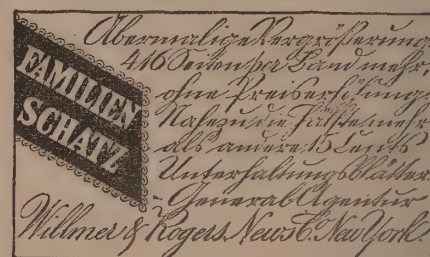 FAMILIEN
SCHATZ
Abermalige Vergrößerung
416 Seiten per Band mehr,
ohne Preiserhöhung
Nahezu die Hälfte mehr
als andere 15 Cents
Unterhaltungs Blätter.
General Agentur
Willmer & Rogers News C. New York.